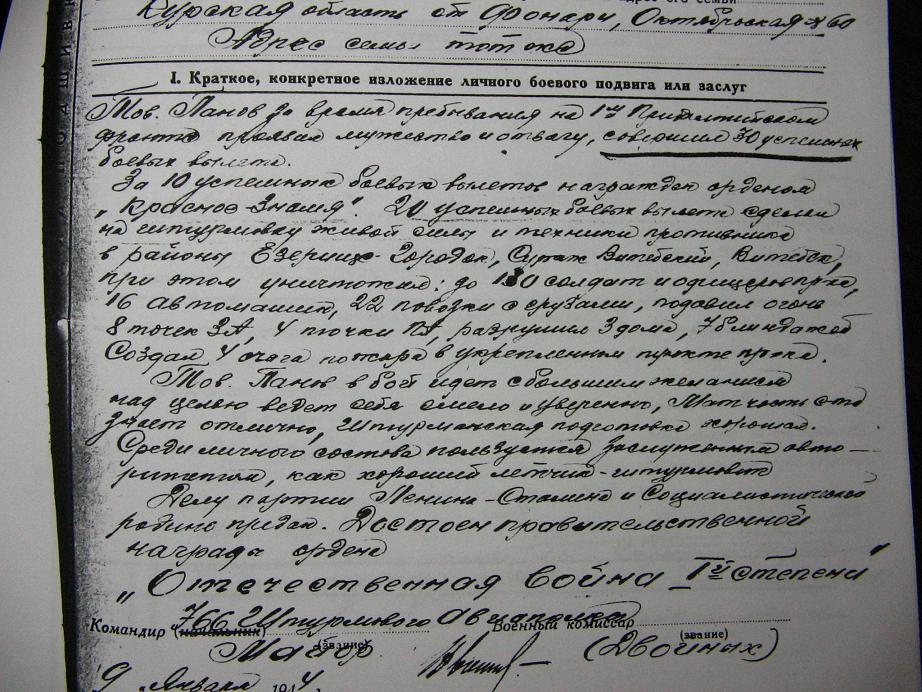 Курская область ст Фонари, Октябрьская № 60
Адрес семьи тот же
I. Краткое, конкретное изложение личного боевого подвига или заслуг
Тов. Панов за время пребывания на 1м Прибалтийском
фронте проявил мужество и отвагу, совершил 30 успешных
боевых вылета.
За 10 успешных боевых вылетов награжден орденом
„Красное Знамя". 20 успешных боевых вылета сделал
на штурмовку живой силы и техники противника
в районы Езерище-Городок, Сураж Витебский, Витебск,
при этом уничтожил: до 180 солдат и офицеров пр-ка,
16 автомашин, 22 повозки с грузами, подавил огонь
8 точек ЗА, 4 точки ПА, разрушил 3 дома, 7 блиндажей
Создал 4 очага пожара в укрепленном пункте пр-ка.
Тов. Панов в бой идет с большим желанием
над целью ведет себя смело и уверенно, Мат часть
знает отлично, Штурманская подготовка хорошая.
Среди личного состава пользуется заслуженным авто-
ритетом, как хороший летчик-штурмовик
Делу партии Ленина-Сталина и Социалистической
родине предан. Достоен правительственной
награды ордена
„Отечественная война Iй степени"
Командир (начальник) 766 Штурмового Авиаполка Военный комиссар
Майор (звание) (Двойных) (звание)
9 Января 1944